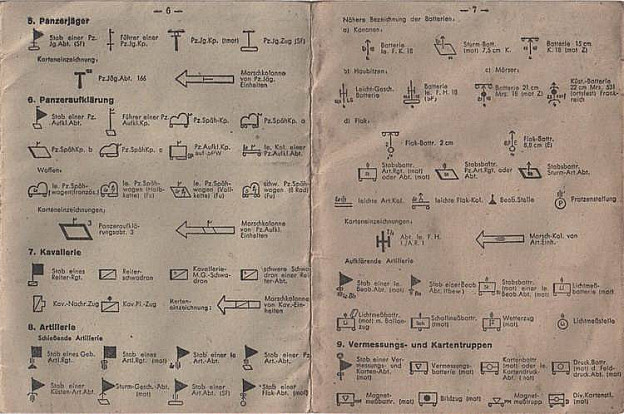 — 6 —
5. Panzerjäger
Stab einer Pz. Jg. Abt. (Sf)
Führer einer Pz. Jg. Kp.
Pz. Jg. Kp. (mot)
Pz. Jg. Zug (Sf)
Karteneinzeichnung:
Pz. Jäg. Abt. 166
Marschkolonne von Pz. Jäg. Einheiten
6. Panzeraufklärung
Stab einer Pz. Aufkl. Abt.
Führer einer Pz. Aufkl. Kp.
Pz. Späh-Kp.
Pz. SpähKp. a
Pz. SpähKp. b
Pz. SpähKp. c
Pz. Aufkl. Kp. auf
le. Kol. einer Pz. Aufkl. Abt.
Waffen:
le. Pz. Späh-wagen
le. Pz. Späh-wagen (Halb-kette) (Fu)
le. Pz. Späh-wagen
schw. Pz. Späh-wagen (8 Rad) (Fu)
Karteneinzeichnungen:
3
Panzeraufklärungsabt. 3
Marschkolonne von Pz. Aufkl. Einheiten
7. Kavallerie
Stab eines Reiter-Rgt.
Reiter-schwadron
Kavallerie-M.G.-Schwadron
schwere Schwadron einer Reiter-Abt.
Kav.-Nachr. Zug
Kav. Pi.-Zug
Karten-einzeichnung:
Marschkolonne von Kav.-Einheiten
8. Artillerie
Schießende Artillerie
Stab eines Geb. Artl. Rgt.
Stab eines Artl. Rgt. (mot)
Stab einer le. Art.-Abt.
Stab einer Pz. Art.-Abt.
Stab einer Küsten-Art. Abt.
Sturm-Gesch.-Abt. (mot)
Stab einer Art. Abt. (Sf)
Stab einer Flak-Abt. (mot)
— 7 —
Nähere Bezeichnung der Batterien.
a) Kanonen:
Batterie le. F. K. 18
Sturm-Batt. (mot) 7,5 cm K.
Batterie 15 cm K. 18 (mot Z)
b) Haubitzen:
c) Mörser:
Leicht-Gesch. Batterie
Batterie le. F. H. 18
Batterie 21 cm Mrs. 18 (mot Z)
Küst.-Batterie 22 cm Mrs. 531 (ortsfest) Frankreich
d) Flak:
Flak-Battr. 2 cm
Flak-Battr. 8,8 cm (E)
Stabsbattr. Art. Rgt. (mot) oder Abt. (mot)
Stabsbattr. Pz. Art. Rgt. oder Abt. (mot)
Stabsbattr. Sturm-Art. Abt.
leichte Art. Kol.
leichte Flak-Kol.
Beob. Stelle
Protzenstellung
Karteneinzeichnungen:
Abt. le. F. H. I./A. R. 1
Marsch-Kol. von Art. Einh.
Aufklärende Artillerie
Stab einer le. Beob. Abt. (mot)
Stab einer Beob. Abt.
Stabsbattr. (mot) einer le. Beob. Abt. (mot)
Lichtmeß-batterie (mot)
Lichtmeßbattr. (mot) m. Ballonzug
Schallmeßbattr. (mot)
Wetterzug (mot)
Lichtmeßstelle
9. Vermessungs- und Kartentruppen
Stab einer Vermessungs- und Karten-Abt. (mot)
Vermessungs-batterie (mot)
Kartenbattr. (mot) oder le. Kartendruck-Abt. (mot)
Druck. Battr. (mot) d. Felddruck. Abt. (mot)
Magnet-meßbattr. (mot)
Bildzug (mot)
Magnet-meßtrupp
Div. Kartenst. (mot)